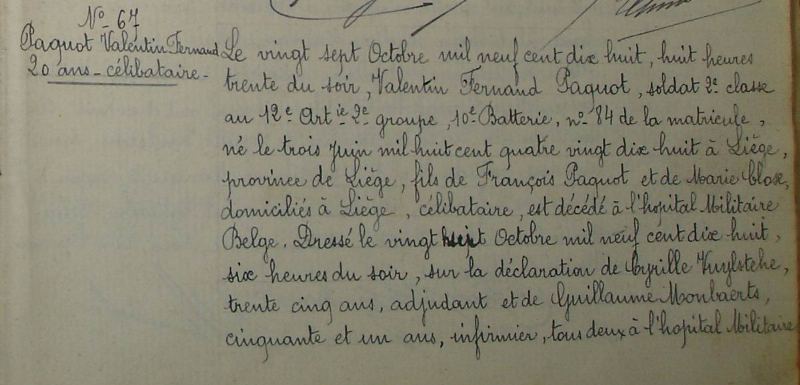 No 67
Paquot Valentin Fernand
20 ans - célibataire -
Le vingt sept Octobre mil neuf cent dix huit, huit heures
trente du soir, Valentin Fernand Paquot, soldat 2e classe
au 12e Artie 2e groupe, 10e Batterie, no 84 de la matricule,
né le trois Juin mil huit cent quatre vingt dix huit à Liège,
province de Liège, fils de François Paquot et de Marie Close,
domiciliés à Liège, célibataire, est décédé à l'hopital Militaire
Belge. Dressé le vingt huit Octobre mil neuf cent dix huit,
six heures du soir, sur la déclaration de Cyrille Vuylsteke,
trente cinq ans, adjudant et de Guillaume Monbaerts,
cinquante et un ans, infirmier, tous deux à l'hopital Militaire